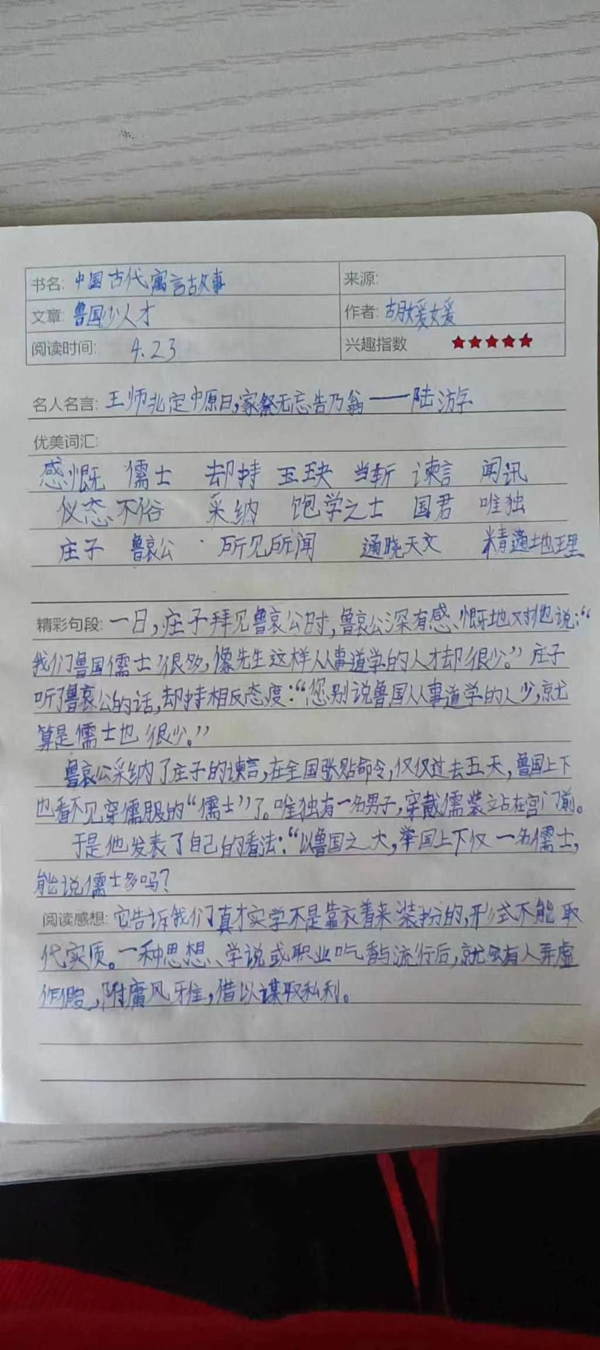 书名: 中国古代寓言故事 来源:
文章: 鲁国少人才 作者: 胡媛媛
阅读时间: 4.23 兴趣指数 ★★★★★
名人名言: 王师北定中原日,家祭无忘告乃翁——陆游
优美词汇:
感慨 儒士 却持 玉玦 当斩 谏言 闻讯
仪态不俗 采纳 饱学之士 国君 唯独
庄子 鲁哀公 所见所闻 通晓天文 精通地理
精彩句段: 一日,庄子拜见鲁哀公时,鲁哀公深有感慨地对他说:“
我们鲁国儒士很多,像先生这样从事道学的人才却很少。”庄子
听了鲁哀公的话,却持相反态度:“您别说鲁国从事道学的人少,就
算是儒士也很少。”
鲁哀公采纳了庄子的谏言,在全国张贴命令,仅仅过去五天,鲁国上下
也看不见穿儒服的“儒士”了。唯独有一名男子,穿戴儒装立站在宫门前。
于是他发表了自己的看法:“以鲁国之大,举国上下仅一名儒士,
能说儒士多吗?
阅读感想: 它告诉我们真才实学不是靠衣着来装扮的,形式不能取
代实质。一种思想、学说或职业吃香与流行后,就会有人弄虚
作假,附庸风雅,借以谋取私利。